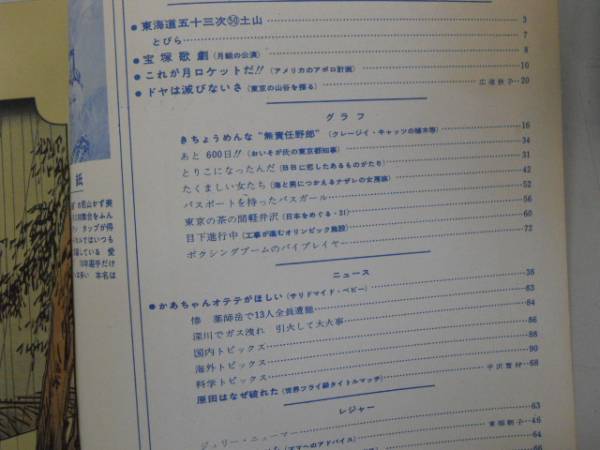 ●東海道五十三次㊿土山 3
とびら 7
●宝塚歌劇（月組の公演） 8
●これが月ロケットだ!!（アメリカのアポロ計画） 10
●ドヤは滅びないさ（東京の山谷を探る） 広池秋子 20
グラフ
きちょうめんな“無責任野郎”（クレージイ・キャッツの植木等） 16
あと 600日!!（おいそが氏の東京都知事） 34
とりこになったんだ 31
たくましい女たち（海と男につかえるナザレの女房族） 42
パスポートを持ったバスガール 52
東京の茶の間軽井沢（日本をめぐる・31） 56
目下進行中（工事が進むオリンピック施設） 60
ボクシングブームのバイプレイヤー 72
ニュース
●かあちゃんオテテがほしい（サリドマイド・ベビー） 38
惨 薬師岳で13人全員遭難 83
深川でガス洩れ 引火して大火事 84
国内トピックス 86
海外トピックス 88
科学トピックス 90
原田はなぜ破れた（世界フライ級タイトルマッチ） 平沢雪村 68
レジャー
ジェリー・ニューマー 63
46
（ママへのアドバイス） 64
66
紙